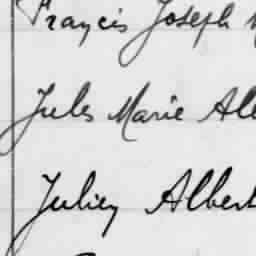 Francis Joseph
Jules Marie Al
Julien Albert